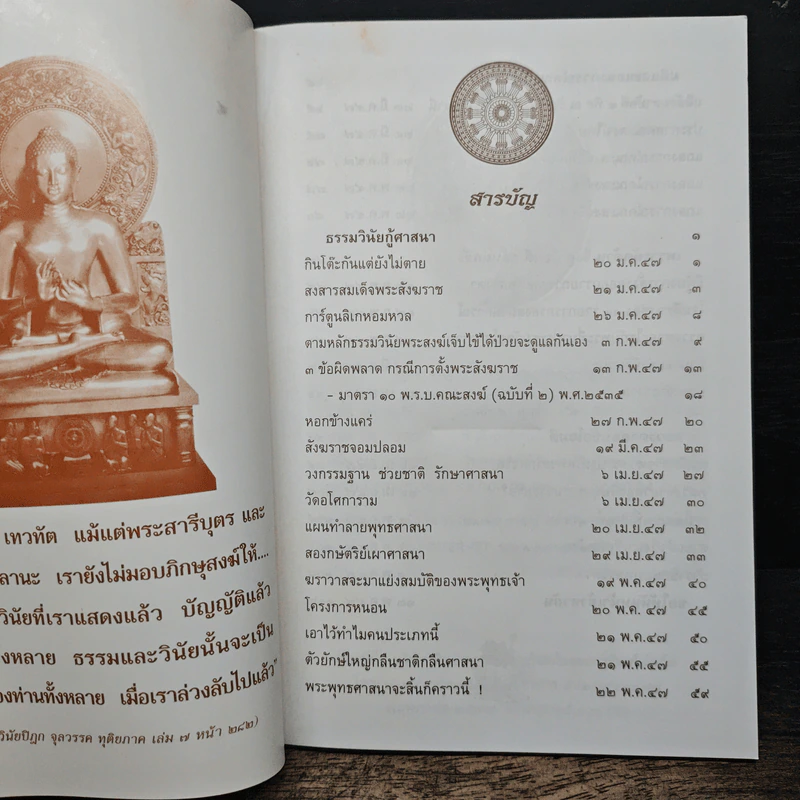 เทวทัต แม้แต่พระสารีบุตร และ
ลานะ เรายังไม่มอบภิกษุสงฆ์ให้....
วินัยที่เราแสดงแล้ว บัญญัติแล้ว
งหลาย ธรรมและวินัยนั้นจะเป็น
องท่านทั้งหลาย เมื่อเราล่วงลับไปแล้ว"
วินัยปิฎก จุลวรรค ทุติยภาค เล่ม ๗ หน้า ๒๘๒)
สารบัญ
ธรรมวินัยกู้ศาสนา ๑
กินโต๊ะกันแต่ยังไม่ตาย ๒๐ ม.ค.๔๗ ๑
สงสารสมเด็จพระสังฆราช ๒๑ ม.ค.๔๗ ๓
การ์ตูนลิเกหอมหวล ๒๖ ม.ค.๔๗ ๘
ตามหลักธรรมวินัยพระสงฆ์เจ็บไข้ได้ป่วยจะดูแลกันเอง ๓ ก.พ.๔๗ ๙
๓ ข้อผิดพลาด กรณีการตั้งพระสังฆราช ๑๓ ก.พ.๔๗ ๑๓
- มาตรา ๑๐ พ.ร.บ.คณะสงฆ์ (ฉบับที่ ๒) พ.ศ.๒๕๓๕ ๑๘
หอกข้างแคร่ ๒๗ ก.พ.๔๗ ๒๐
สังฆราชจอมปลอม ๑๙ มี.ค.๔๗ ๒๓
วงกรรมฐาน ช่วยชาติ รักษาศาสนา ๖ เม.ย.๔๗ ๒๗
วัดอโศการาม ๖ เม.ย.๔๗ ๓๐
แผนทำลายพุทธศาสนา ๒๐ เม.ย.๔๗ ๓๒
สองกษัตริย์เผาศาสนา ๒๙ เม.ย.๔๗ ๓๓
ฆราวาสจะมาแย่งสมบัติของพระพุทธเจ้า ๑๙ พ.ค.๔๗ ๔๐
โครงการหนอน ๒๐ พ.ค. ๔๗ ๔๕
เอาไว้ทำไมคนประเภทนี้ ๒๑ พ.ค.๔๗ ๕๐
ตัวยักษ์ใหญ่กลืนชาติกลืนศาสนา ๒๑ พ.ค.๔๗ ๕๕
พระพุทธศาสนาจะสิ้นก็คราวนี้ ! ๒๒ พ.ค.๔๗ ๕๙